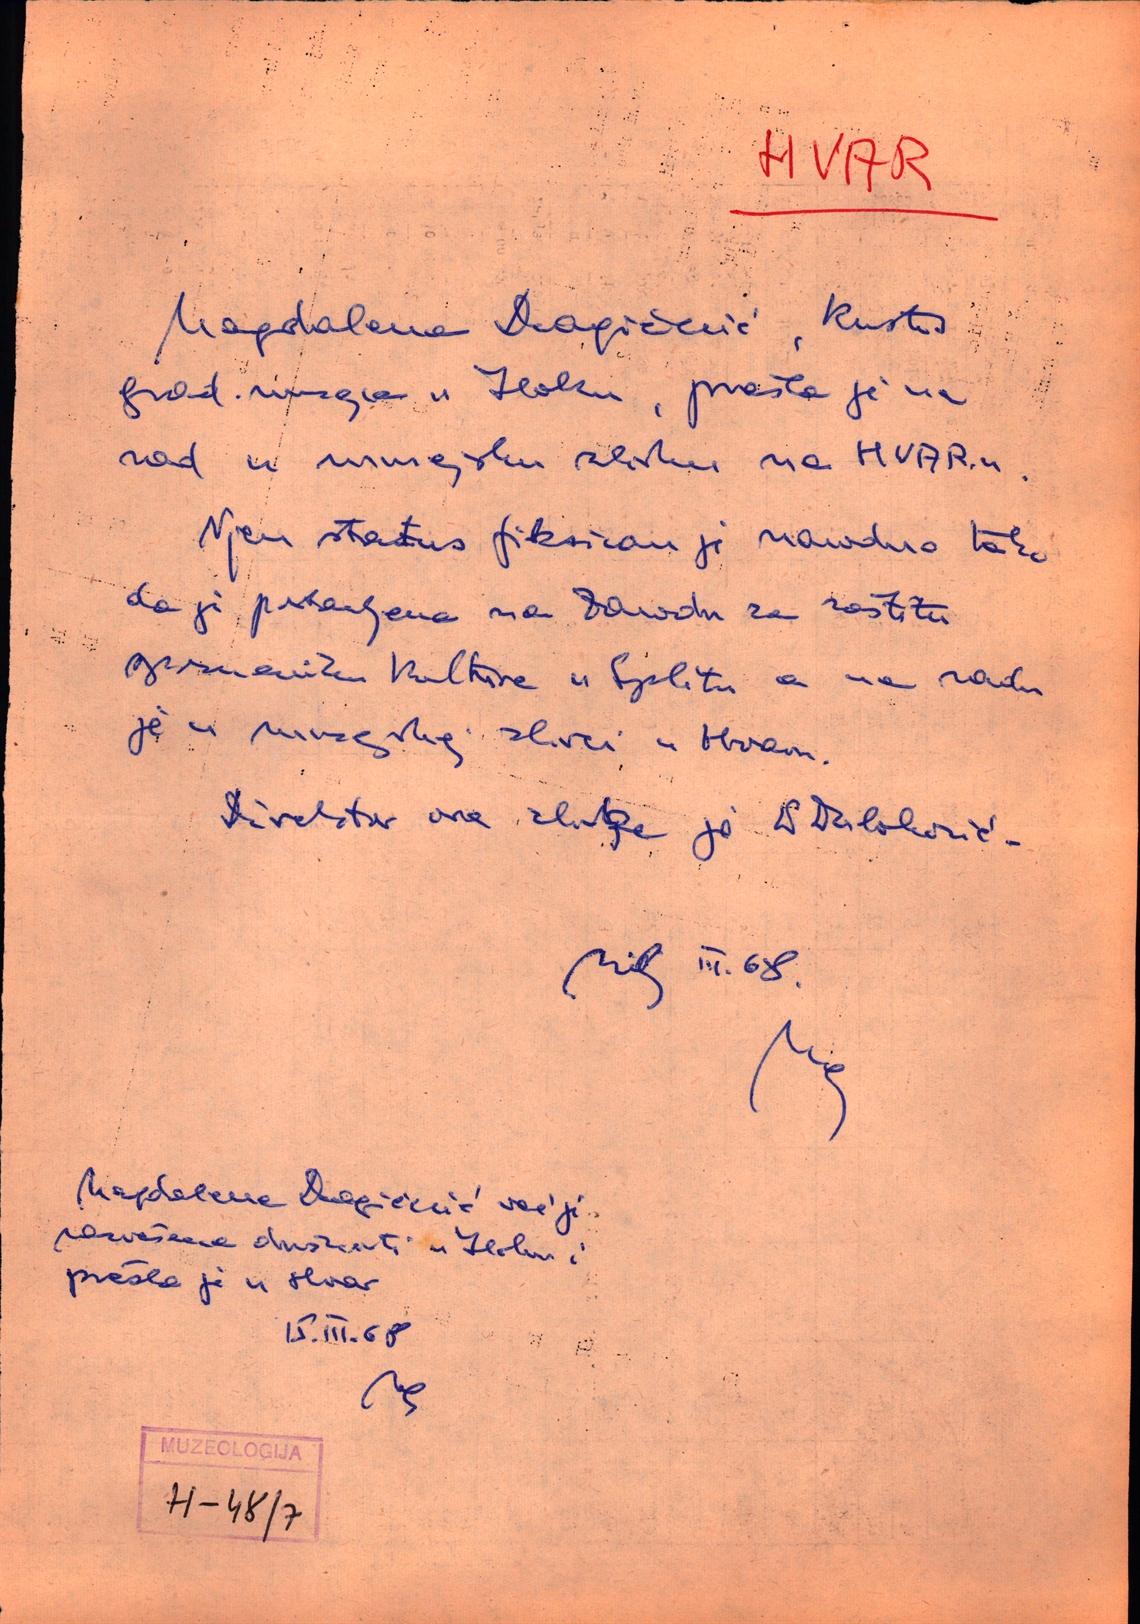 HVAR
Magdalena Dragičević, kustos
grad. muzeja u Iloku, prešla je na
rad u muzejsku zbirku na HVAR-u.
Njen status fiksiran je navodno tako
da je postavljena na Zavodu za zaštitu
spomenika kulture u Splitu a na radu
je u muzejskoj zbirci u Hvaru.
Direktor ove zbirke je
III. 68.
Magdalena Dragičević već je
razrešena dužnosti u Iloku i
prešla je u Hvar
15.III.68
MUZEOLOGIJA
H-48/7